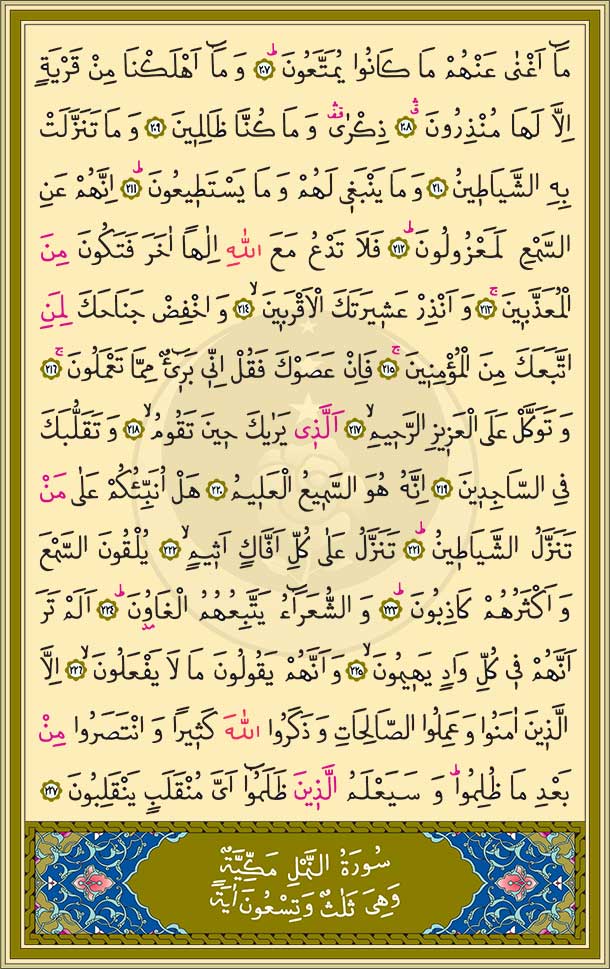 مَٓا اَغْنٰى عَنْهُمْ مَا كَانُوا يُمَتَّعُونَۜ ﴿٢٠٧﴾ وَ مَٓا اَهْلَكْنَا مِنْ قَرْيَةٍ
اِلَّا لَهَا مُنْذِرُونَۗ ﴿٢٠٨﴾ ذِكْرٰى۠ وَ مَا كُنَّا ظَالِمِينَ ﴿٢٠٩﴾ وَ مَا تَنَزَّلَتْ
بِهِ الشَّيَاطِينُ ﴿٢١٠﴾ وَ مَا يَنْبَغِي لَهُمْ وَ مَا يَسْتَطِيعُونَۜ ﴿٢١١﴾ اِنَّهُمْ عَنِ
السَّمْعِ لَمَعْزُولُونَۜ ﴿٢١٢﴾ فَلَا تَدْعُ مَعَ اللّٰهِ اِلٰهًا اٰخَرَ فَتَكُونَ مِنَ
الْمُعَذَّبِينَۚ ﴿٢١٣﴾ وَ اَنْذِرْ عَشِيرَتَكَ الْاَقْرَبِينَۙ ﴿٢١٤﴾ وَ اخْفِضْ جَنَاحَكَ لِمَنِ
اتَّبَعَكَ مِنَ الْمُؤْمِنِينَۚ ﴿٢١٥﴾ فَاِنْ عَصَوْكَ فَقُلْ اِنِّي بَرِٓيءٌ مِمَّا تَعْمَلُونَۚ ﴿٢١٦﴾
وَ تَوَكَّلْ عَلَى الْعَزِيزِ الرَّحِيمِۙ ﴿٢١٧﴾ اَلَّذِي يَرٰيكَ حِينَ تَقُومُۙ ﴿٢١٨﴾ وَ تَقَلُّبَكَ
فِي السَّاجِدِينَ ﴿٢١٩﴾ اِنَّهُ هُوَ السَّمِيعُ الْعَلِيمُ ﴿٢٢٠﴾ هَلْ اُنَبِّئُكُمْ عَلٰى مَنْ
تَنَزَّلُ الشَّيَاطِينُۜ ﴿٢٢١﴾ تَنَزَّلُ عَلٰى كُلِّ اَفَّاكٍ اَثِيمٍۙ ﴿٢٢٢﴾ يُلْقُونَ السَّمْعَ
وَ اَكْثَرُهُمْ كَاذِبُونَۜ ﴿٢٢٣﴾ وَ الشُّعَرَٓاءُ يَتَّبِعُهُمُ الْغَاوُ۫نَۜ ﴿٢٢٤﴾ اَلَمْ تَرَ
اَنَّهُمْ فِي كُلِّ وَادٍ يَهِيمُونَۙ ﴿٢٢٥﴾ وَ اَنَّهُمْ يَقُولُونَ مَا لَا يَفْعَلُونَۙ ﴿٢٢٦﴾ اِلَّا
الَّذِينَ اٰمَنُوا وَ عَمِلُوا الصَّالِحَاتِ وَ ذَكَرُوا اللّٰهَ كَثِيرًا وَ انْتَصَرُوا مِنْ
بَعْدِ مَا ظُلِمُواۜ وَ سَيَعْلَمُ الَّذِينَ ظَلَمُٓوا اَيَّ مُنْقَلَبٍ يَنْقَلِبُونَ ﴿٢٢٧﴾
سُورَةُ النَّمْلِ مَكِّيَّةٌ
وَهِيَ ثَلٰثٌ وَتِسْعُونَ اٰيَةً